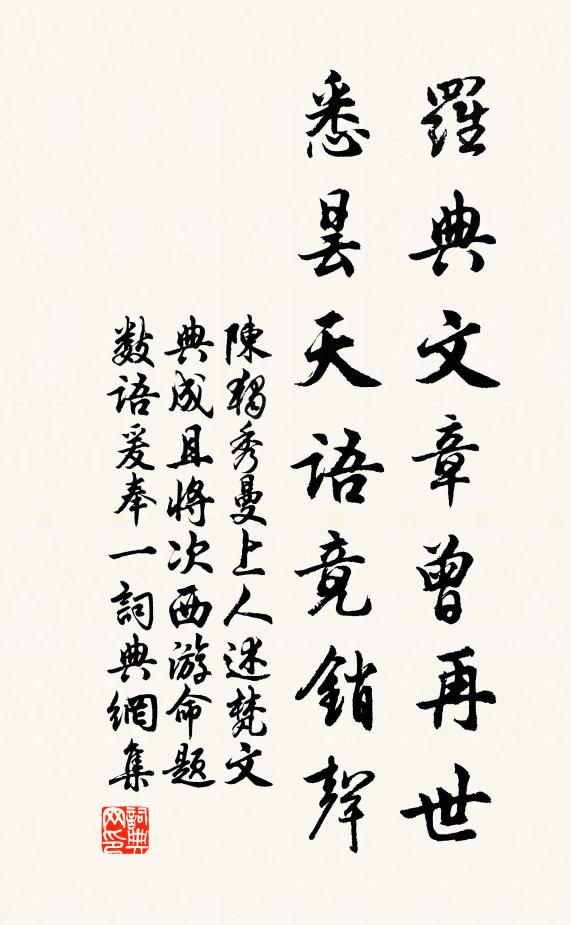 羅典文章曾再世
悉曇天語竟銷聲
陳獨秀曼上人述梵文
典成且將次西游命題
數語爰奉一詞典網集
詞典
网印